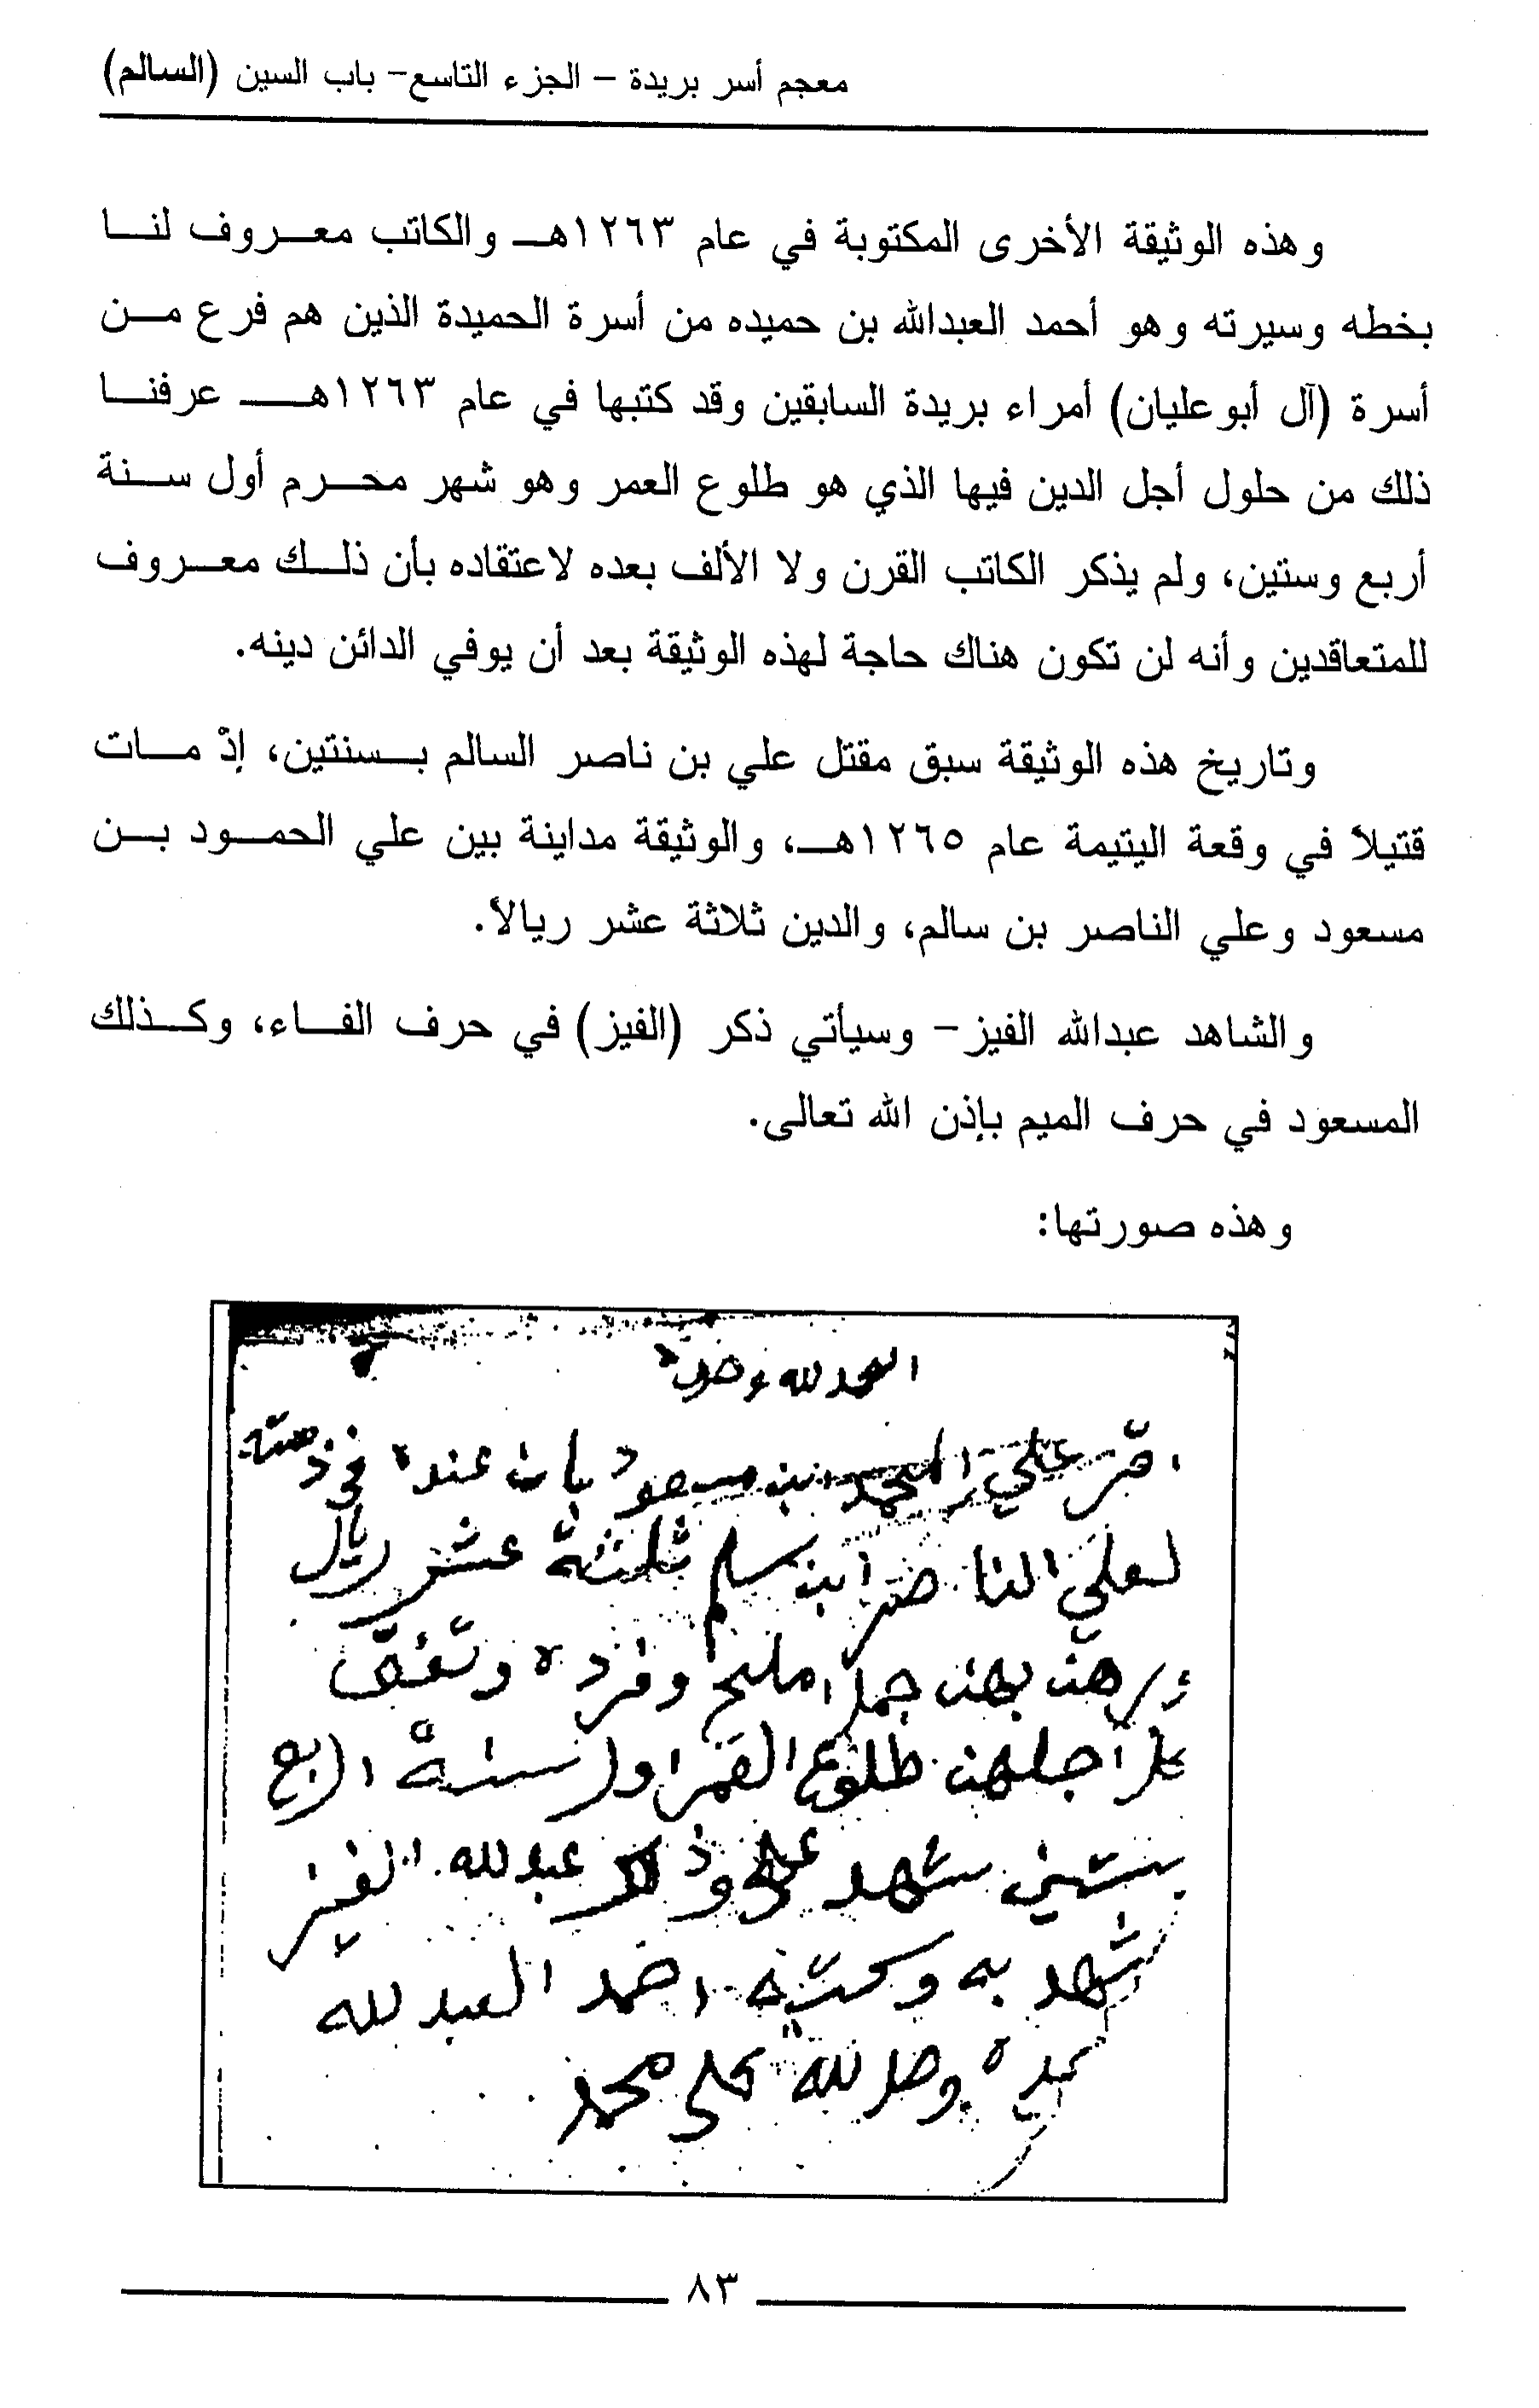 معجم أسر بريدة – الجزء التاسع– باب السين (السالم)
وهذه الوثيقة الأخرى المكتوبة في عام ١٢٦٣هـ والكاتب معروف لنا
بخطه وسيرته وهو أحمد العبدالله بن حميده من أسرة الحميدة الذين هم فرع من
أسرة (آل أبو عليان) أمراء بريدة السابقين وقد كتبها في عام ١٢٦٣هـ عرفنا
ذلك من حلول أجل الدين فيها الذي هو طلوع العمر وهو شهر محرم أول سنة
أربع وستين، ولم يذكر الكاتب القرن ولا الألف بعده لاعتقاده بأن ذلك معروف
للمتعاقدين وأنه لن تكون هناك حاجة لهذه الوثيقة بعد أن يوفي الدائن دينه.
وتاريخ هذه الوثيقة سبق مقتل علي بن ناصر السالم بسنتين، إذْ مات
قتيلاً في وقعة اليتيمة عام ١٢٦٥هـ، والوثيقة مداينة بين علي الحمود بن
مسعود وعلي الناصر بن سالم، والدين ثلاثة عشر ريالاً.
والشاهد عبدالله الفيز– وسيأتي ذكر (الفيز) في حرف الفاء، وكذلك
المسعود في حرف الميم بإذن الله تعالى.
وهذه صورتها:
الحمد لله وحده
اقر علي المحمد ابن مسعود بان عنده في ذمته
لعلي الناصر ابن سلم ثلثة عشر ريال
ارهن بهن جمل املح
اجلهن طلوع اول سنة اربع
ستين شهد على ذلك عبدلله الفيز
شهد به وكتبه احمد العبدلله
حميده وصلا لله على محمد
٨٣